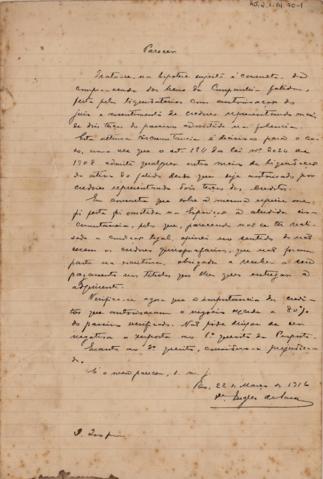 Parecer
Trata-se, na hypothese sujeita á consulta, da
compra e venda dos bens da Companhia fallida,
feita pelo liquidatario com autorisação do
juiz e assentimento de credores representando mais
de dois terços do passivo admittido na fallencia.
Esta ultima circumstancia é decisiva para o ca-
so, uma vez que o art. 124 da lei nº 2024 de
1908 admitte qualquer outro meio de liquidação
do activo do fallido desde que seja autorisado por
credores representando dois terços dos creditos.
Em consulta que sobre a mesma especie me
foi feita foi omittida na exposição a alludida cir-
cumstancia, pelo que, parecendo não se ter reali-
sado a condição legal, opinei no sentido de não
serem os credores chirographarios, que não foram
parte na escriptura, obrigados a receber o seu
pagamento em titulos que lhes quer entregar o
adquirente.
Verifica-se agora que a importancia dos credi-
tos que autorisaram o negocio excede a 80%
do passivo verificado. Não pode deixar de ser
negativa a resposta ao 1º quesito da Proposta.
Quanto ao 2º quesito, considero-o prejudica-
do.
É o meu parecer, s. m. j.
Rio, 22 de Março de 1916
Dr. Inglez de Souza